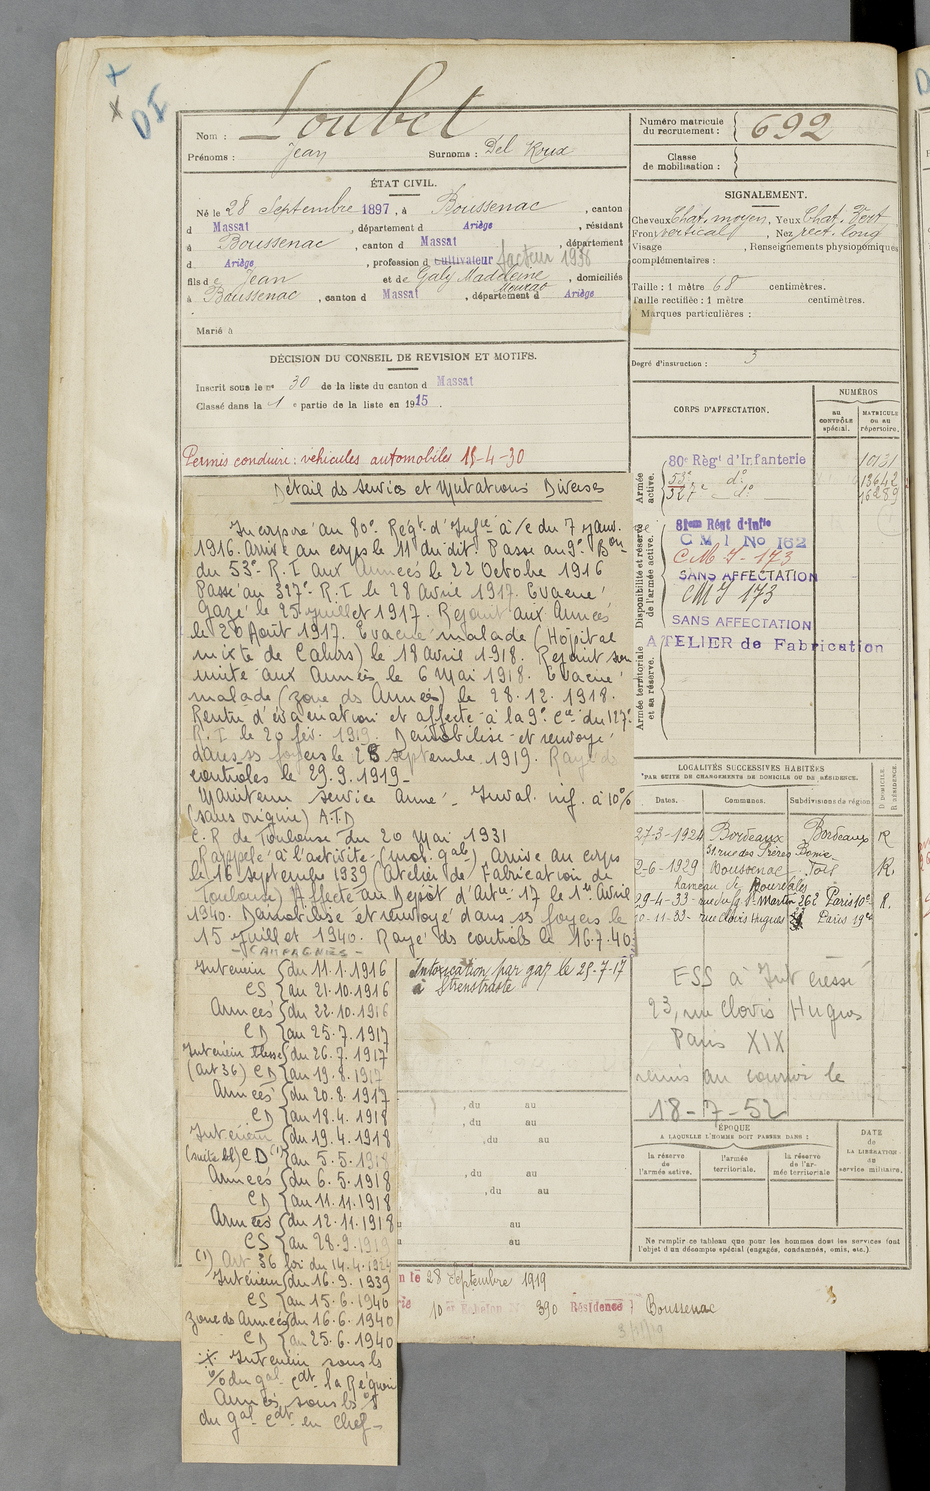 DI
Nom : Loubet
Prénoms : Jean Surnoms : Del Roux
Numéro matricule du recrutement : 692
Classe de mobilisation :
ÉTAT CIVIL.
Né le 28 Septembre 1897, à Boussenac, canton
d Massat, département d Ariège, résidant
à Boussenac, canton d Massat, département
d Ariège, profession d cultivateur facteur 1938
fils de Jean et de Galy Madeleine, domiciliés
à Boussenac, canton d Massat, département d Ariège
Marié à
SIGNALEMENT.
Cheveux Chat. moyen, Yeux Chat. Vert
Front vertical, Nez rect. long
Visage , Renseignements physionomiques
complémentaires :
Taille : 1 mètre 68 centimètres.
Taille rectifiée : 1 mètre centimètres.
Marques particulières :
Degré d'instruction : 3
DÉCISION DU CONSEIL DE REVISION ET MOTIFS.
Inscrit sous le nº 30 de la liste du canton d Massat
Classé dans la 1 e partie de la liste en 1915.
Permis conduire : véhicules automobiles 15-4-30
CORPS D'AFFECTATION.
NUMÉROS
au CONTRÔLE spécial.
MATRICULE ou au répertoire.
Armée active.
80e Règt d'Infanterie 10131
53e dº 13642
327e dº 16289
Disponibilité et réserve de l'armée active.
81eme Régt d'Infie
C M I No 162
C.M.I - 173
SANS AFFECTATION
CMI 173
SANS AFFECTATION
ATELIER de Fabrication
Armée territoriale et sa réserve.
Détail ds services et Mutations Diverses
Incorporé au 80e Regt d'Infie à /c du 7 janv.
1916. Arrivé au corps le 11 du dit. Passe au 9e Bon
du 53e R.I aux Armées le 22 Octobre 1916
Passé au 327e R.I le 28 Avril 1917. Evacué
Gazé le 25 juillet 1917. Rejoint aux Armées
le 20 Août 1917. Evacué malade (Hôpital
mixte de Cahors) le 18 avril 1918. Rejoint son
unité aux Armées le 6 Mai 1918. Evacué
malade (zone ds Armées) le 28.12.1918.
Rentré d'évacuation et affecté à la 9e Cie du 127e
R.I le 20 fév. 1919. Démobilisé et renvoyé
dans ss foyers le 28 septembre 1919. Rayé ds
contrôles le 29.9.1919-
Maintenu service armé - Inval. inf. à 10%
(sans origine) A.T.D
C.R de Toulouse du 20 Mai 1931
Rappelé à l'activité (mob. gale) Arrivé au corps
le 16 septembre 1939 (Atelier de Fabrication de
Toulouse) Affecté au Dépôt d'Artie 17 le 1er Avril
1940. Démobilisé et renvoyé dans ss foyers le
15 Juillet 1940. Rayé ds contrôles le 16.7.40
LOCALITÉS SUCCESSIVES HABITÉES
PAR SUITE DE CHANGEMENTS DE DOMICILE OU DE RÉSIDENCE.
Dates. Communes. Subdivisions de région. D DOMICILE. R RÉSIDENCE.
27-3-1924 Bordeaux Bordeaux R
31. rue des Frères Bonie
2-6-1929 Boussenac Foix R.
hameau de
29-4-33- rue du fg St Martin 262 Paris 10e R.
10-11-33- rue Clovis Hugues Paris 19e
- CAMPAGNES -
Intérieur {du 11.1.1916
CS {au 21.10.1916
Armées {du 22.10.1916
CD {au 25.7.1917
Intérieur blessé {du 26.7.1917
(art 36) CD {au 19.8.1917
Armées {du 20.8.1917
CD {au 18.4.1918
Intérieur {du 19.4.1918
(suite bl) CD (1) {au 5.5.1918
Armées {du 6.5.1918
CD {au 11.11.1918
Armées {du 12.11.1918
CS {au 28.9.1919
(1) Art 36 loi du 14.4.1924
Intérieur {du 16.9.1939
CS {au 15.6.1940
zone ds Armées {du 16.6.1940
CD {au 25.6.1940
Intérieur sous ls
o/ du gal cdt la Région
Armées sous ls o/
du gal cdt en chef -
Intoxication par gaz le 25-7-17
à
, du au
, du au
, du au
, du au
, du au
au
au
ESS à Intéressé
23, rue Clovis Hugues
Paris XIX
remis au courrier le
18-7-52
ÉPOQUE
A LAQUELLE L'HOMME DOIT PASSER DANS :
la réserve de l'armée active.
l'armée territoriale.
la réserve de l'armée territoriale
DATE de LA LIBÉRATION du service militaire.
Ne remplir ce tableau que pour les hommes dont les services font
l'objet d'un décompte spécial (engagés, condamnés, omis, etc.).
n le 28 Septembre 1919
10e Echelon Nº 390 Résidence : Boussenac
3